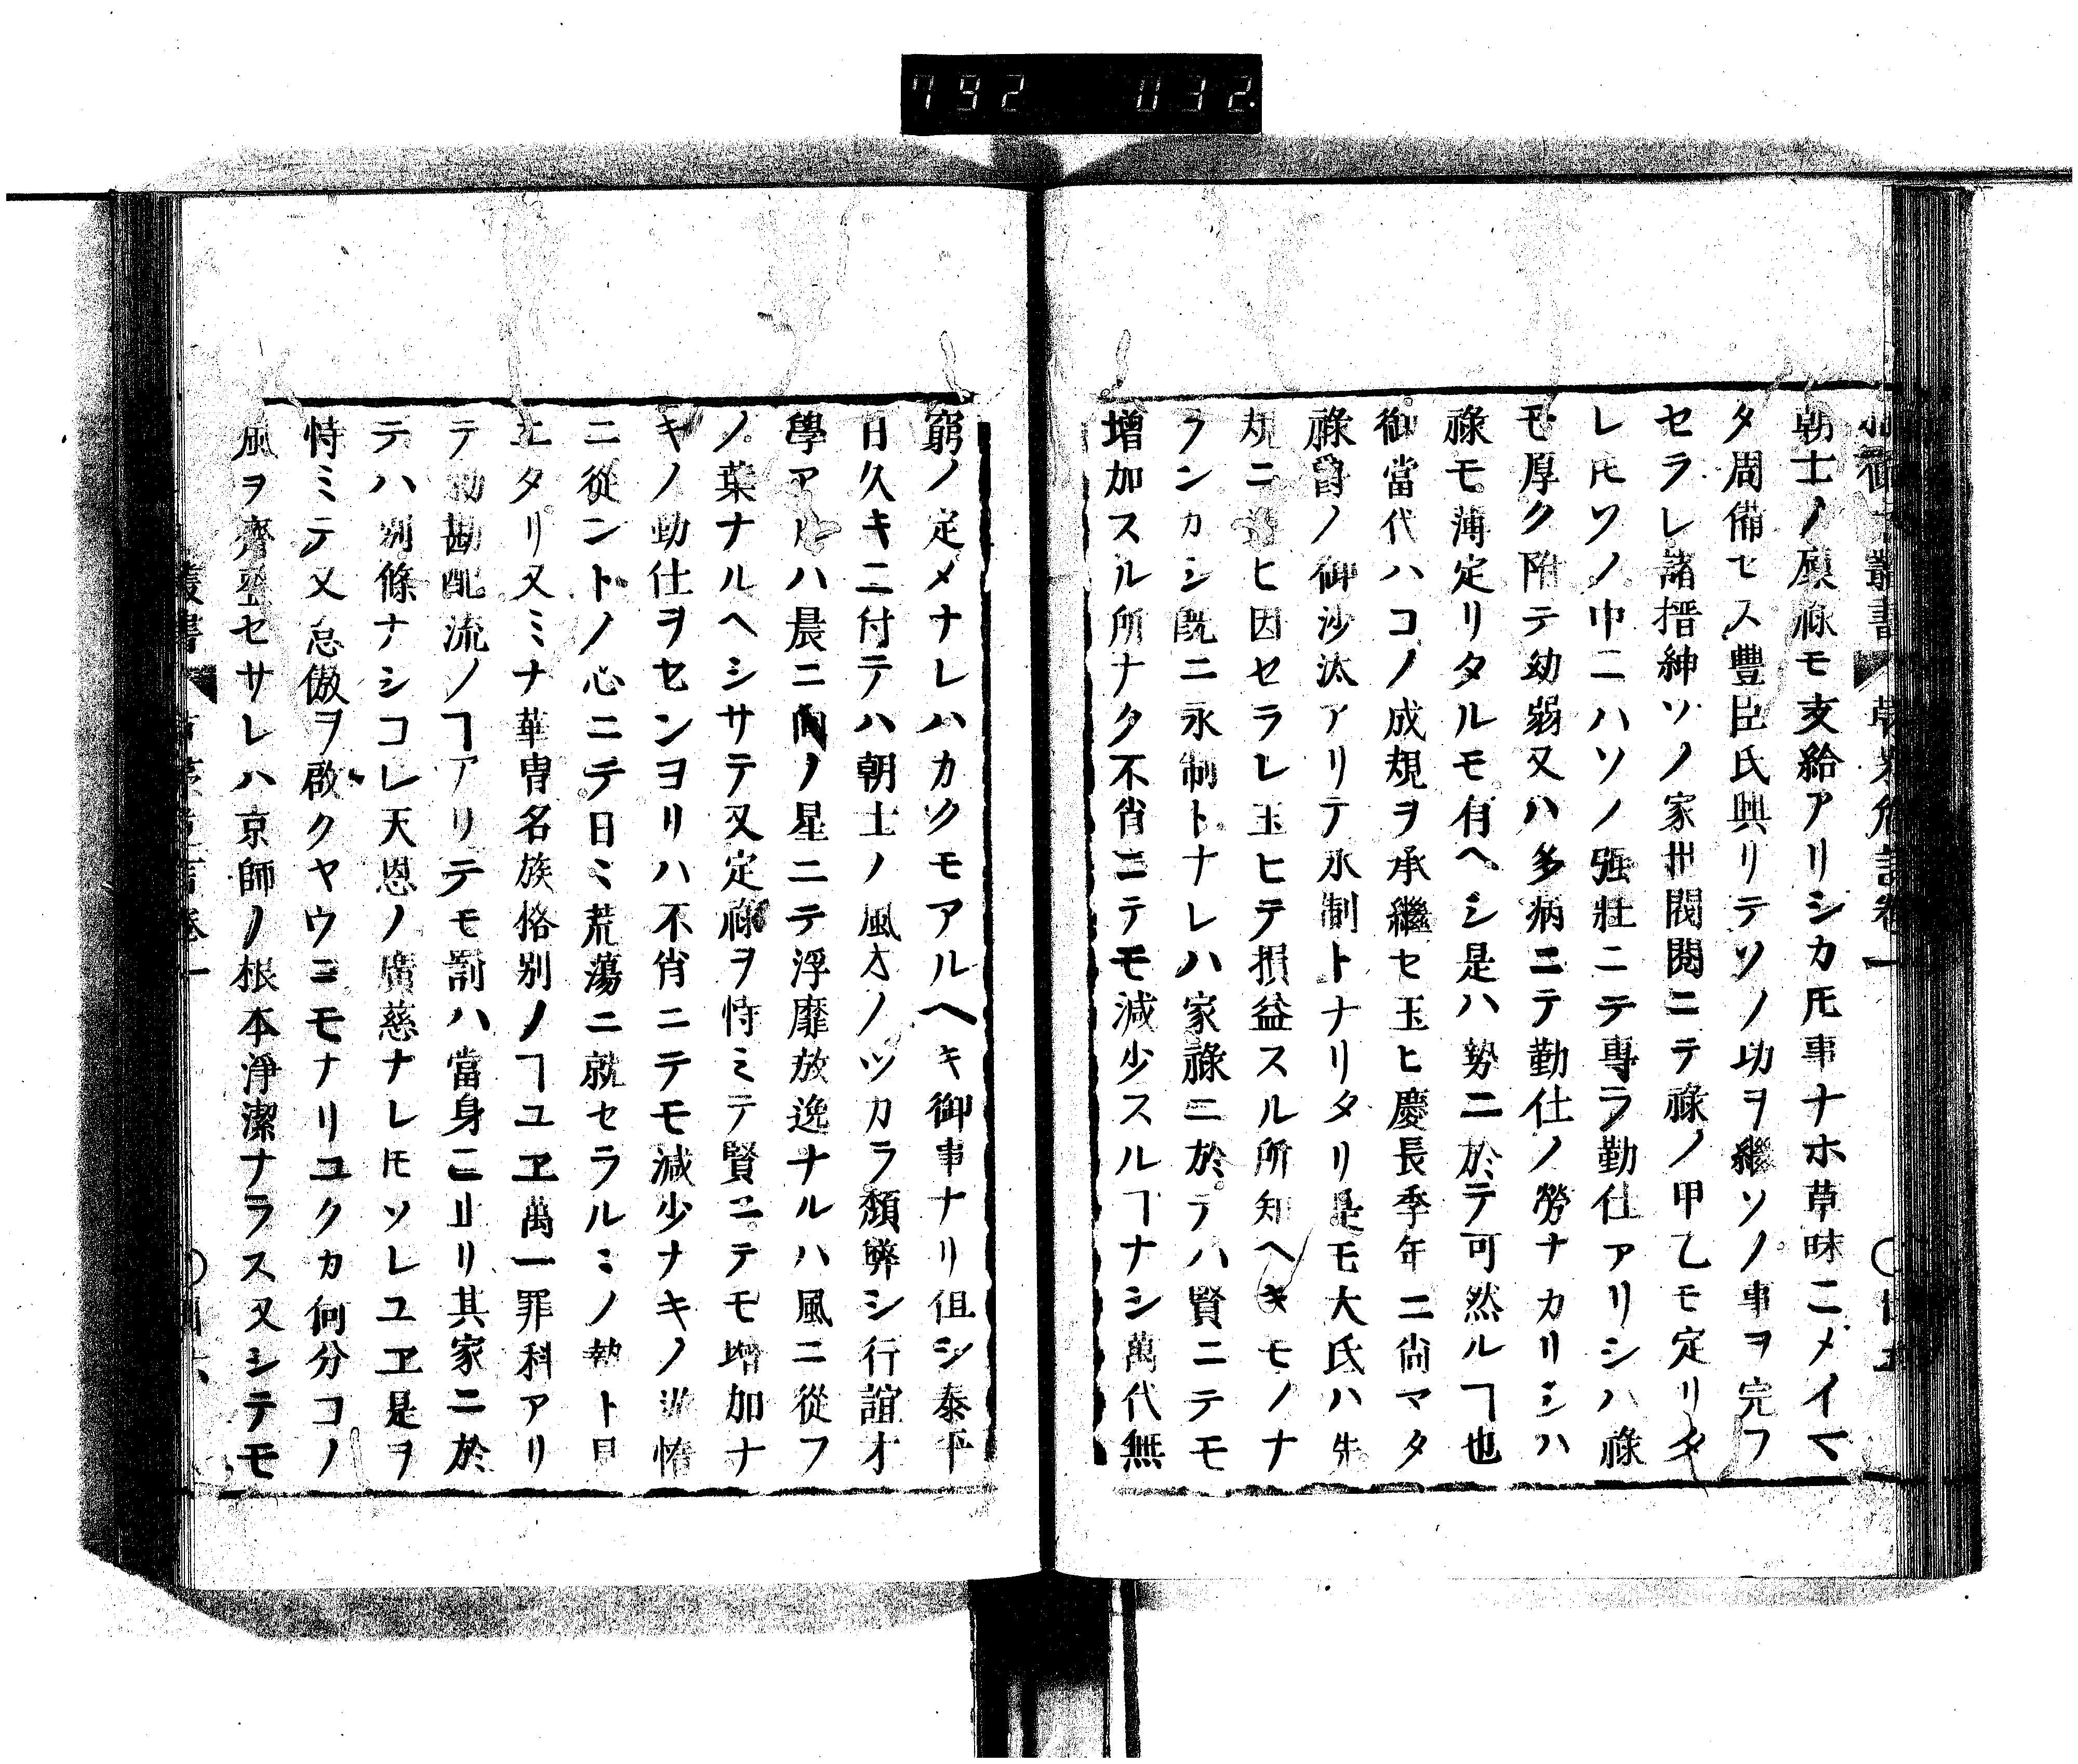 792 032
朝士ノ廩祿モ支給アリシカ𪜈事ナホ草昧ニメイマ
タ周備セス豐臣氏興リテソノ功ヲ繼ソノ事ヲ完フ
セラレ諸搢紳ソノ家卅閥閲ニテ祿ノ甲乙モ定リタ
レ𪜈ソノ中ニハソノ强壯ニテ專ラ勤仕アリシハ祿
モ厚ク陏テ幼弱又ハ多病ニテ勤仕ノ勞ナカリシハ
祿モ薄定リタルモ有ヘシ是ハ勢ニ於テ可然ルヿ也
御當代ハコノ成規ヲ承繼セ玉ヒ慶長季年ニ尙マタ
祿爵ノ御沙汰アリテ永制トナリタリ是モ大氐ハ先
規ニヒ因セラレ玉ヒテ損益スル所知ヘキモノナ
ランカシ既ニ永制トナレハ家祿ニ於テハ賢ニテモ
增加スル所ナク不肖ニテモ減少スルヿナシ萬代無
窮ノ定メナレハカクモアルヘキ御事ナリ伹シ泰平
日久キニ付テハ朝士ノ風オノツカラ頽弊シ行誼才
學アルハ晨ニ向ノ星ニテ浮靡放逸ナルハ風ニ從フ
ノ葉ナルヘシサテ又定祿ヲ恃ミテ賢ニテモ增加ナ
キノ勤仕ヲセンヨリハ不肖ニテモ減少ナキノ游惰
ニ從ントノ心ニテ日ミ荒蕩ニ就セラルミノ執ト見
エタリ又ミナ華冑名族格别ノヿユヱ萬一罪科アリ
テ勅勘配流ノヿアリテモ罰ハ當身ニ止リ其家ニ於
テハ别條ナシコレ天恩ノ廣慈ナレ𪜈ソレユヱ是ヲ
恃ミテ又怠傲ヲ啟クヤウニモナリユクカ何分コノ
風ヲ齊整セサレハ京師ノ根本淨潔ナラス又シテモ